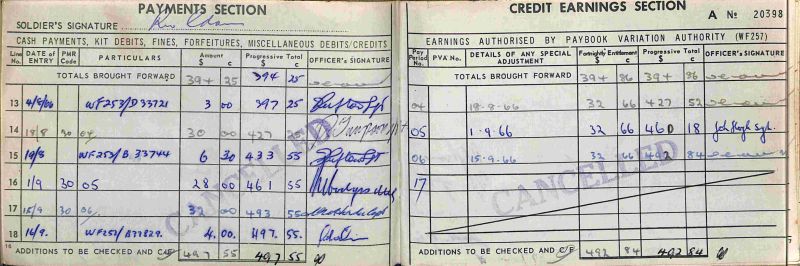 PAYMENTS SECTION
SOLDIER'S SIGNATURE
CASH PAYMENTS, KIT DEBITS, FINES, FORFEITURES, MISCELLANEOUS DEBITS/CREDITS
Line No. DATE of ENTRY PMR Code PARTICULARS Amount $ c Progressive Total $ c OFFICER'S SIGNATURE
TOTALS BROUGHT FORWARD 394 25 394 25
13 4/8/66 WF253/D33721 3 00 397 25
14 18/8 30 04 30 00 427 25
15 19/8 WF252/B.33744 6 30 433 55
16 1/9 30 05 28 00 461 55
17 15/9 30 06 32 00 493 55
18 16/9. WF252/B77829. 4.00. 497. 55.
ADDITIONS TO BE CHECKED AND C/F 497 55 497 55
CANCELLED
CREDIT EARNINGS SECTION
A No 20398
EARNINGS AUTHORISED BY PAYBOOK VARIATION AUTHORITY (WF257)
Pay Period No. PVA No. DETAILS OF ANY SPECIAL ADJUSTMENT Fortnightly Entitlement $ c Progressive Total $ c OFFICER'S SIGNATURE
TOTALS BROUGHT FORWARD 394 86 394 86
04 18-8-66 32 66 427 52
05 1-9.66 32 66 460 18
06 15.9.66 32 66 492 84
17
ADDITIONS TO BE CHECKED AND C/F 492 84 492 84
CANCELLED